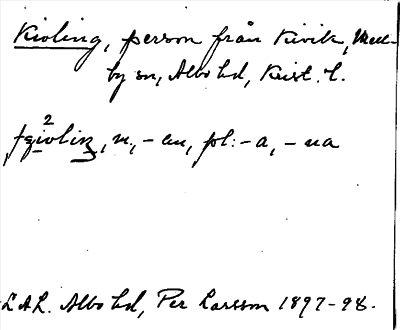 Kivling, person från Kivik, Mell-
by sn, Albo hd, Krist. l.
m, -en, pl: -a, -na
LAL. Albo hd, Per Larsson 1897-98.